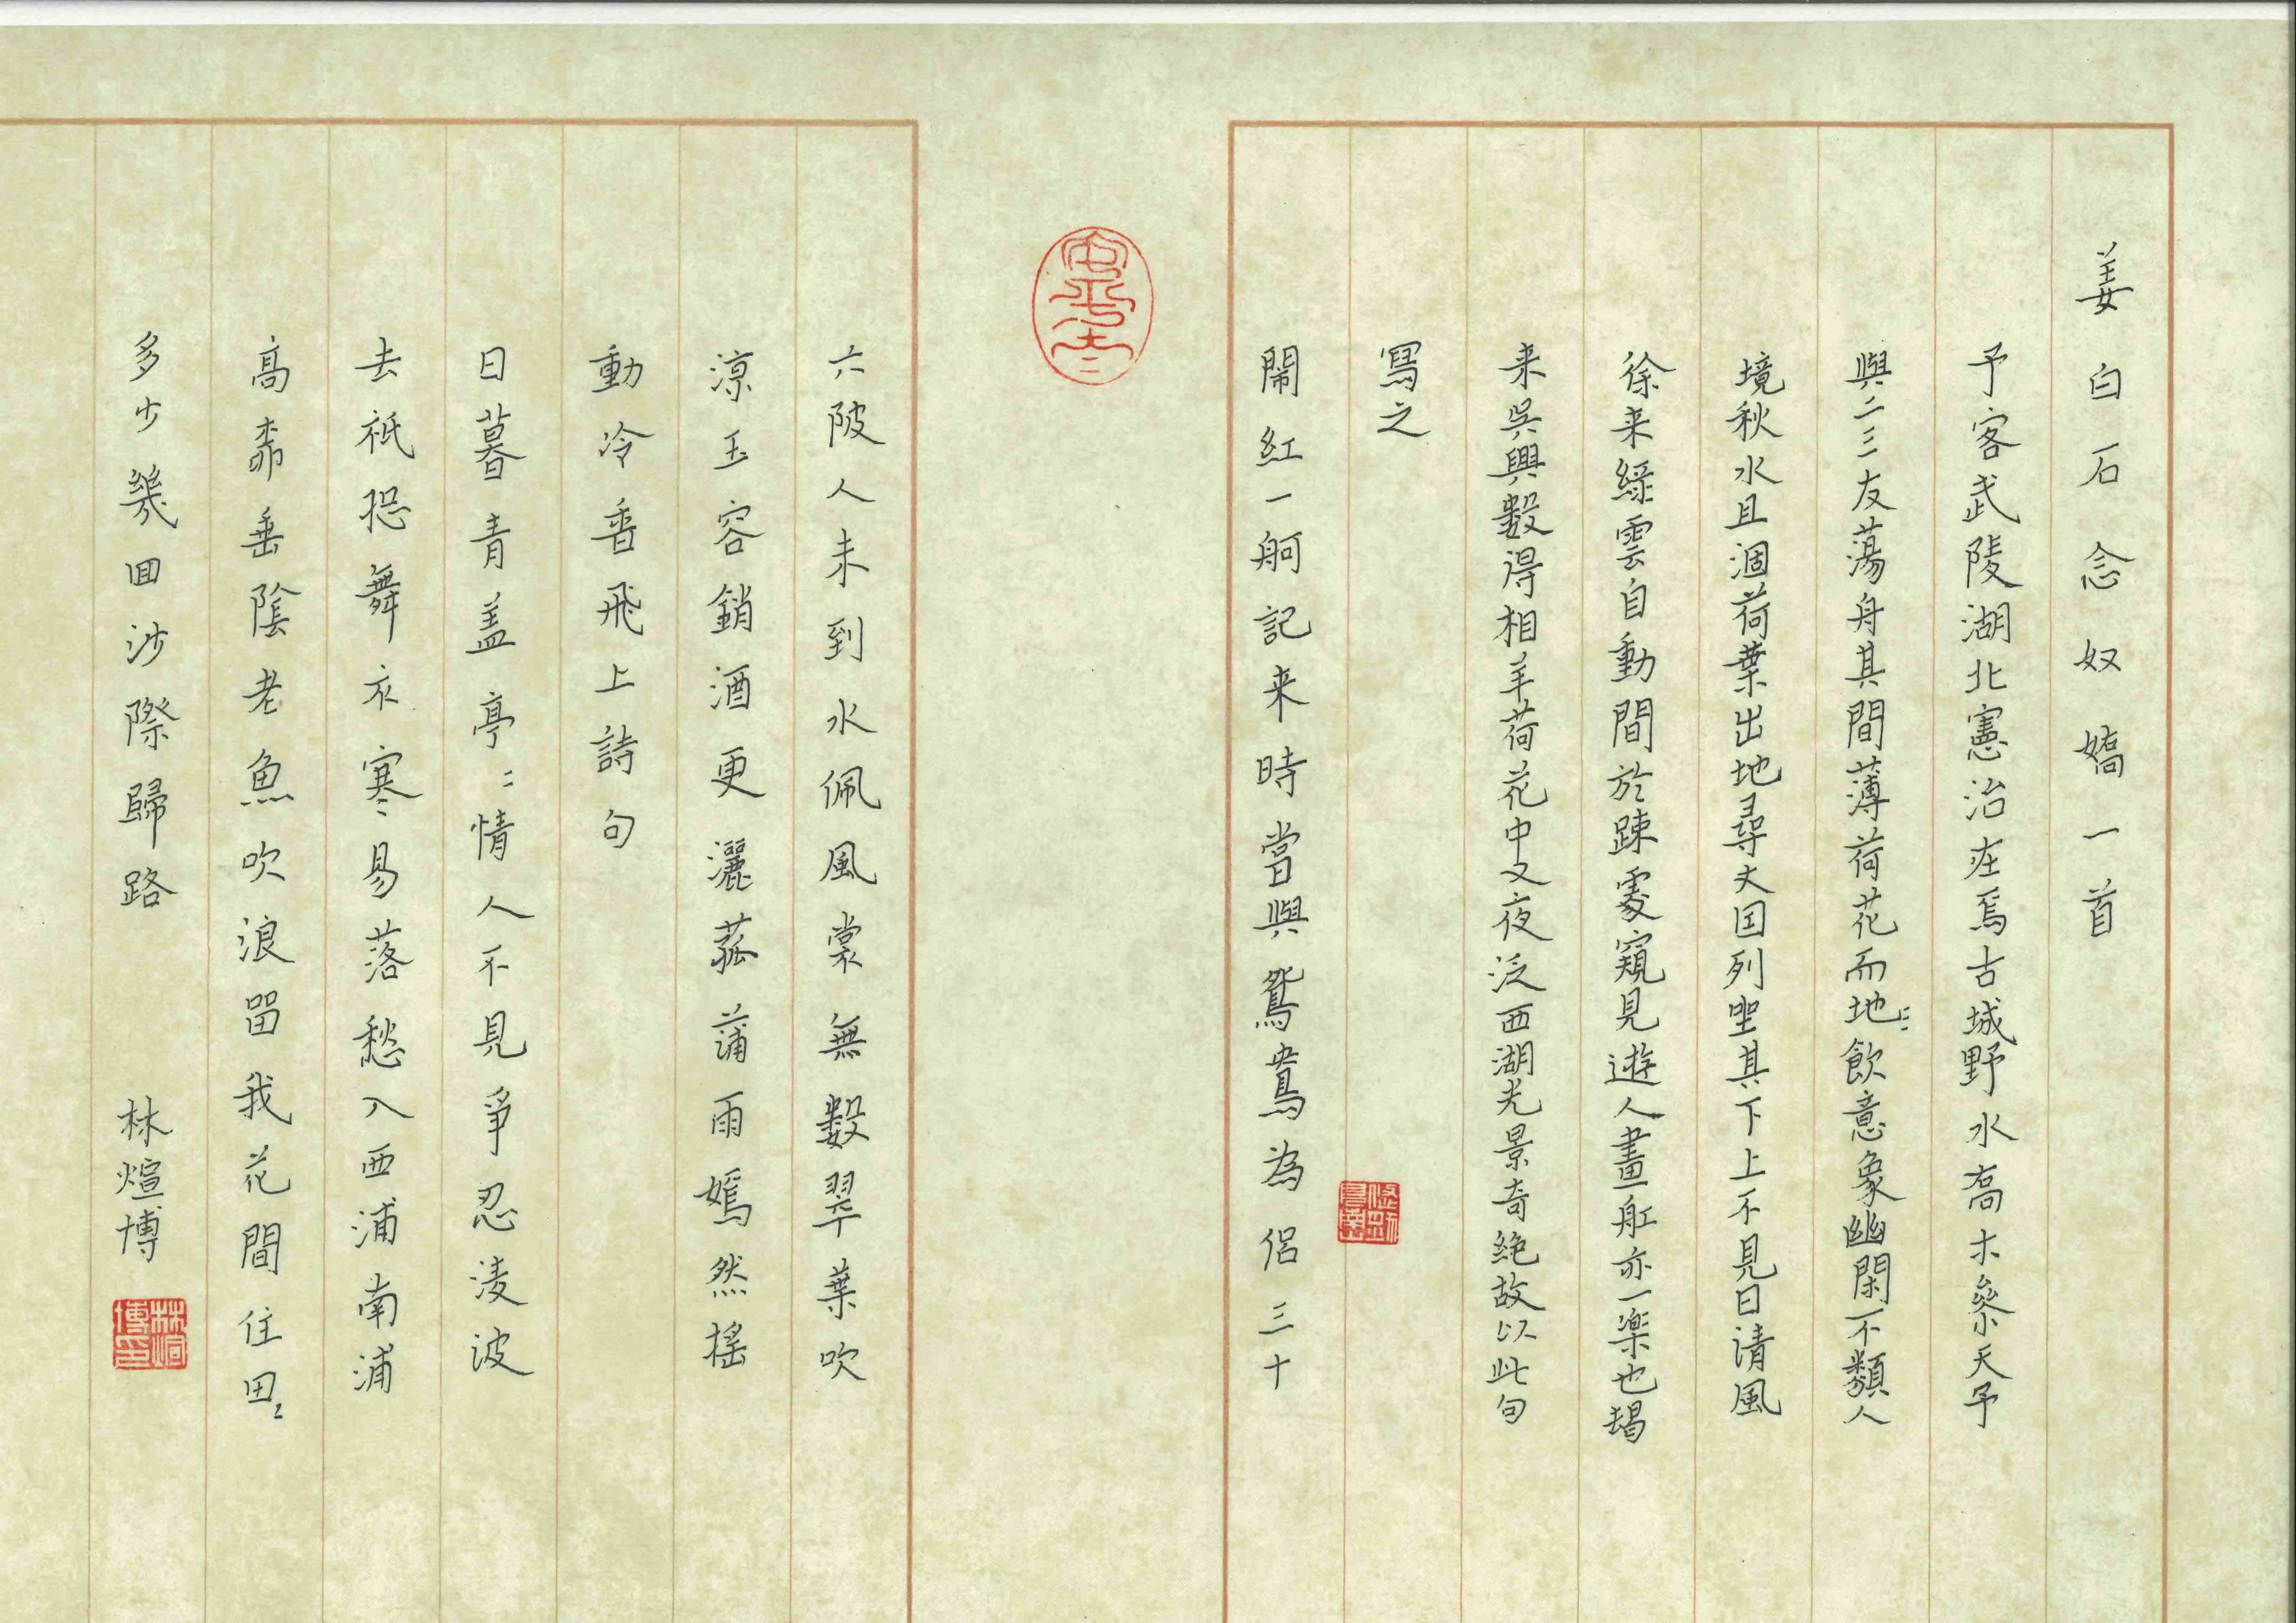 姜白石念奴嬌一首
予客武陵湖北憲治在焉古城野水喬木參天予
與二三友蕩舟其間薄荷花而地〻飲意象幽閑不類人
境秋水且涸荷葉出地尋丈因列坐其下上不見日清風
徐来綠雲自動間於踈處窺見遊人畫舡亦一樂也朅
来吳興數得相羊荷花中又夜泛西湖光景奇絶故以此句
寫之
鬧紅一舸記来時當與鴛鴦為侶三十
六陂人未到水佩風裳無數翠葉吹
凉玉容銷酒更灑菰蒲雨嫣然搖
動冷香飛上詩句
日暮青盖亭〻情人不見爭忍淩波
去祇恐舞衣寒易落愁入西浦南浦
高桺垂陰老魚吹浪畱我花間住田〻
多少幾回沙際歸路 林煊博